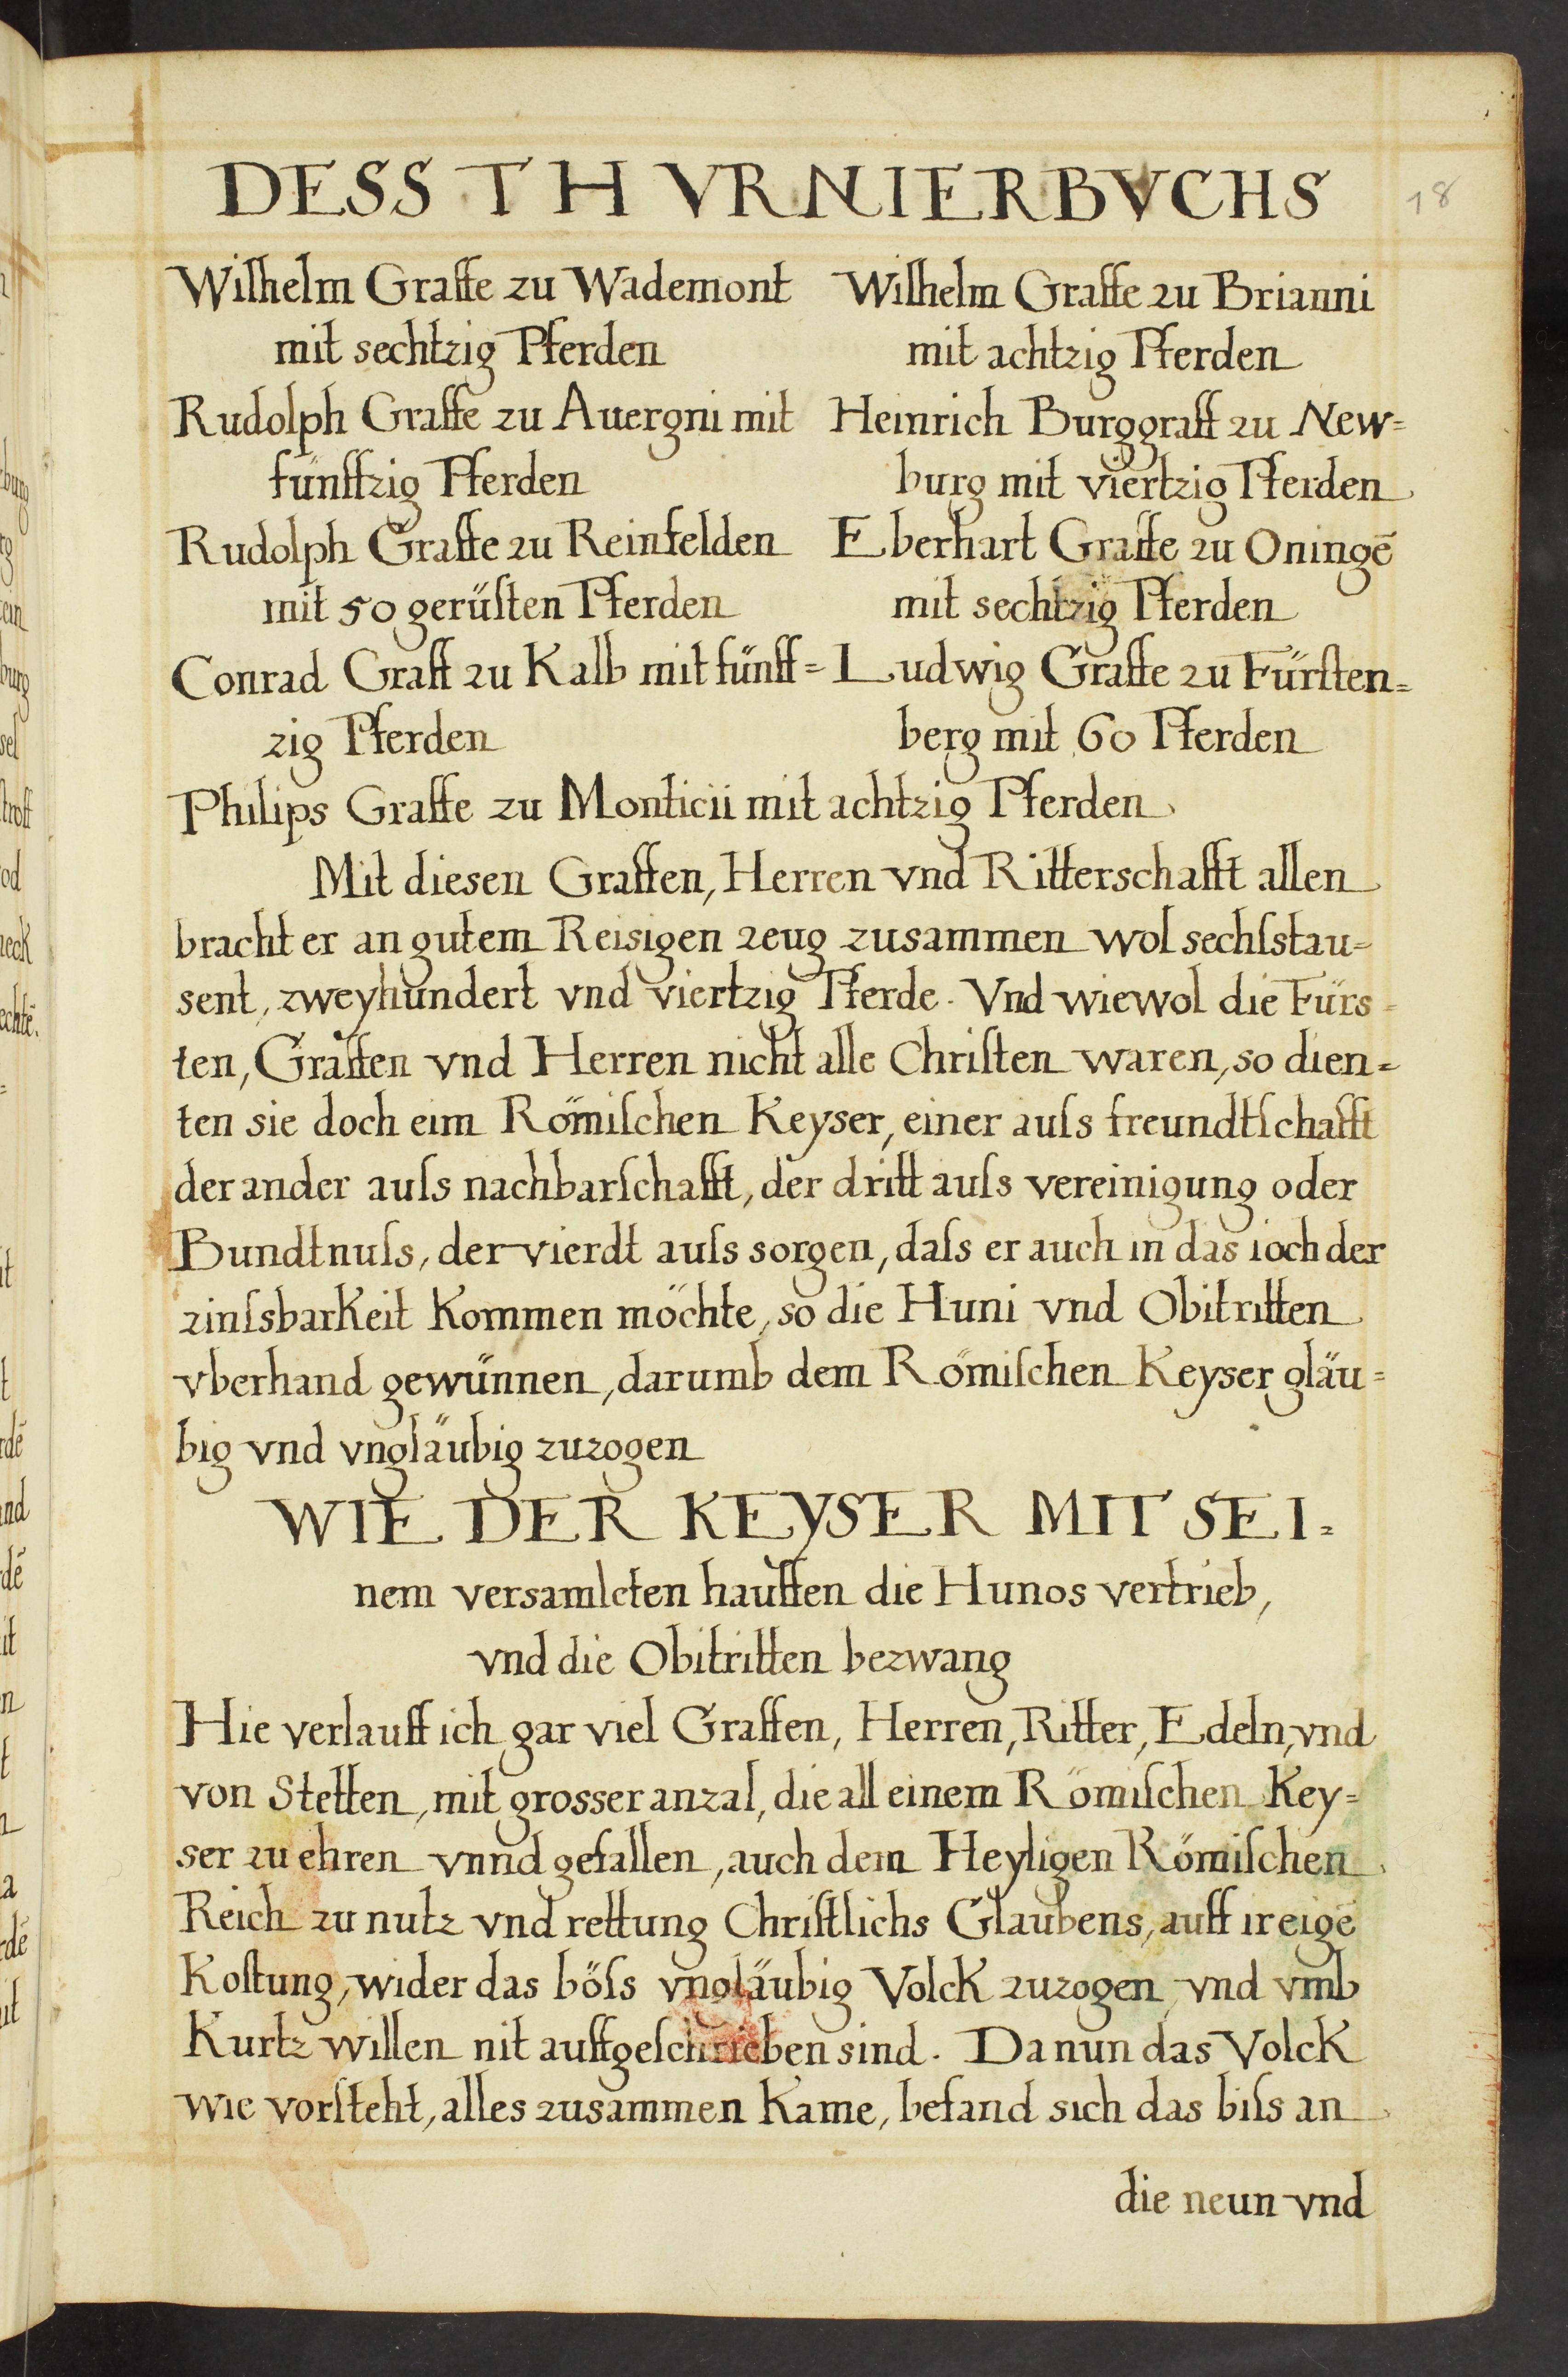 DESS THVRNIERBVCHS
18
Wilhelm Graffe zu Wademont
mit sechtzig Pferden
Rudolph Graffe zu Auergni mit
fünfftzig Pferden
Rudolph Graffe zu Reinfelden
mit 50 gerüſten Pferden
Conrad Graff zu Kalb mit fünff=
zig Pferden
Wilhelm Graffe zu Brianni
mit achtzig Pferden
Heinrich Burggraff zu New=
burg mit viertzig Pferden
Eberhart Graffe zu Oningē
mit sechtzig Pferden
Ludwig Graffe zu Fürſten=
berg mit 60 Pferden
Philips Graffe zu Monticii mit achtzig Pferden
Mit diesen Graffen, Herren vnd Ritterschafft allen
bracht er an gutem Reisigen zeug zusammen wol sechſstau=
sent, zweyhundert vnd viertzig Pferde. Vnd wiewol die Fürs=
ten, Graffen vnd Herren nicht alle Chriſten waren, so dien=
ten sie doch eim Römiſchen Keyser, einer auſs freundtſchafft
der ander auſs nachbarſchafft, der dritt auſs vereinigung oder
Bundtnuſs, der vierdt auſs sorgen, daſs er auch in das ioch der
zinſsbarkeit kommen möchte, so die Huni vnd Obitritten
vberhand gewünnen, darumb dem Römiſchen Keyser gläu=
big vnd vngläubig zuzogen
WIE DER KEYSER MIT SEI=
nem versamleten hauffen die Hunos vertrieb,
vnd die Obitritten bezwang
Hie verlauff ich gar viel Graffen, Herren, Ritter, Edeln, vnd
von Stetten, mit grosser anzal, die all einem Römiſchen Key=
ser zu ehren vnnd gefallen, auch dem Heyligen Römiſchen
Reich zu nutz vnd rettung Chriſtlichs Glaubens, auff ir eigē
Koſtung, wider das böſs vngläubig Volck zuzogen, vnd vmb
Kurtz willen nit auffgeſchrieben sind. Da nun das Volck
wie vorſteht, alles zusammen Kame, befand sich das biſs an
die neun vnd